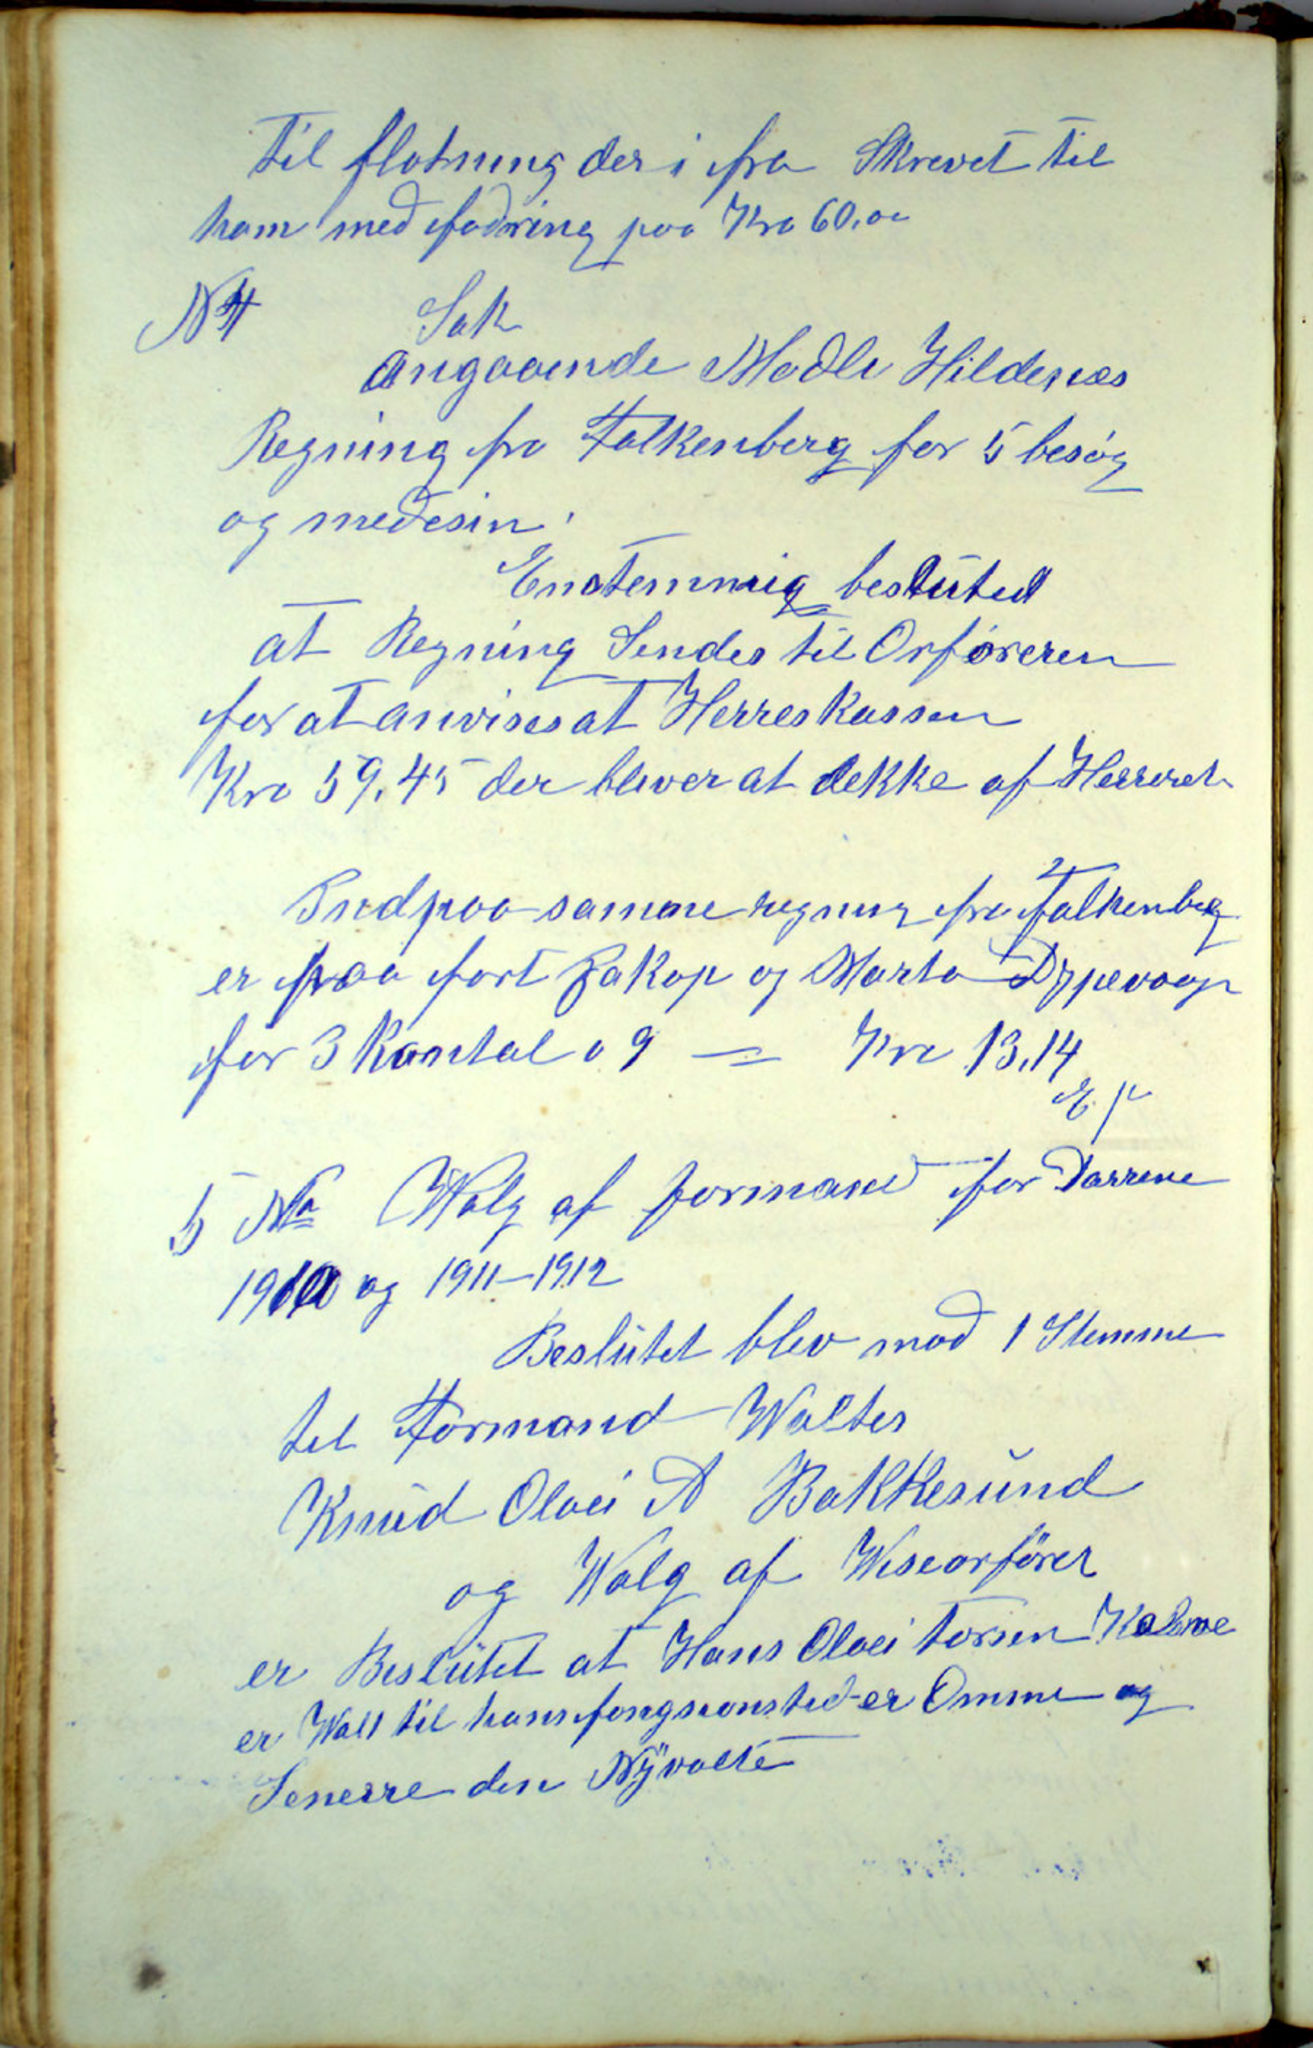 til flotning der i fra Skrevet til
ham med fodring paa Kro 60.00
N 4 Sak
angaaende Madli Hildenæs
Regning fra Falkenberg for 5 besøg
og medesin.
Enstemmig beslutted
at Regning Sendes til Orføreren
for at anvises at Herreskassen
Kro 59.45 der bliver at dekke af Herreds
Ind paa samme regning fra Falkenbeg
er paa fort Jakop og Marta Dypevaag
for 3 Kontal a 9 = Kro 13.14
5 No Walg af formand for Aarrene
1910 og 1911-1912
Beslutet blev mod 1 Stemme
til Formand Waltes
Knud Olaei A Bakkesund
og Walg af Wiseorfører
er Beslutet at Hans Olaei torsen Kalvøe
er Walt til hans fongsionsted er Omme og
Senerre den Nyvalte